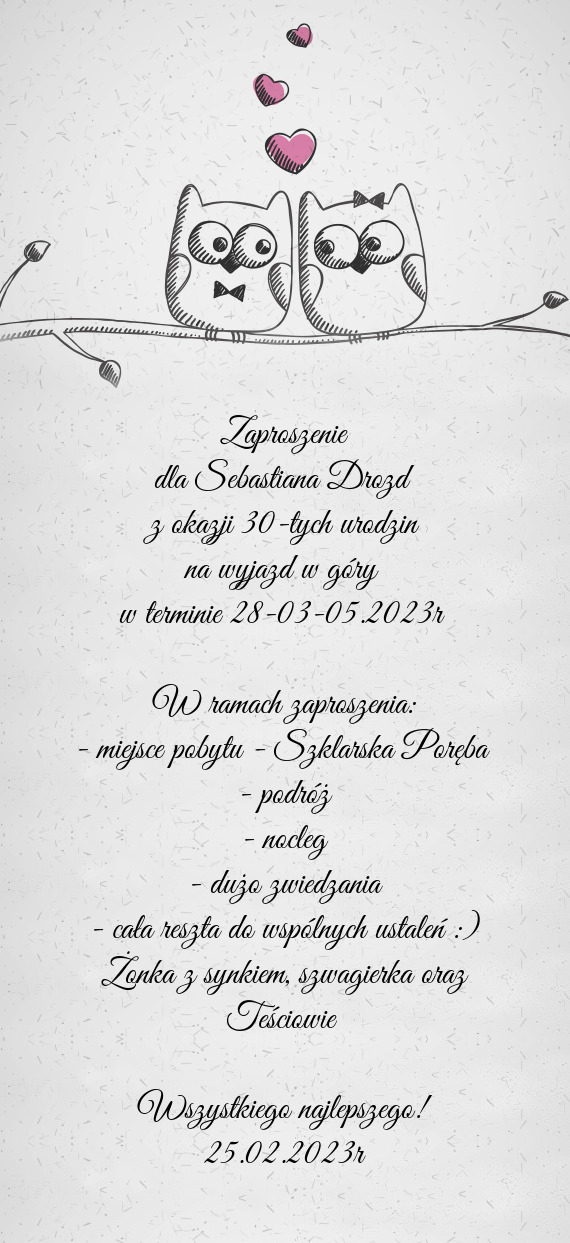 Zaproszenie
dla Sebastiana Drozd
z okazji 30-tych urodzin
na wyjazd w góry
w terminie 28-03-05.2023r
W ramach zaproszenia:
- miejsce pobytu - Szklarska Poręba
- podróż
- nocleg
- dużo zwiedzania
- cała reszta do wspólnych ustaleń :)
Żonka z synkiem, szwagierka oraz
Teściowie
Wszystkiego najlepszego!
25.02.2023r